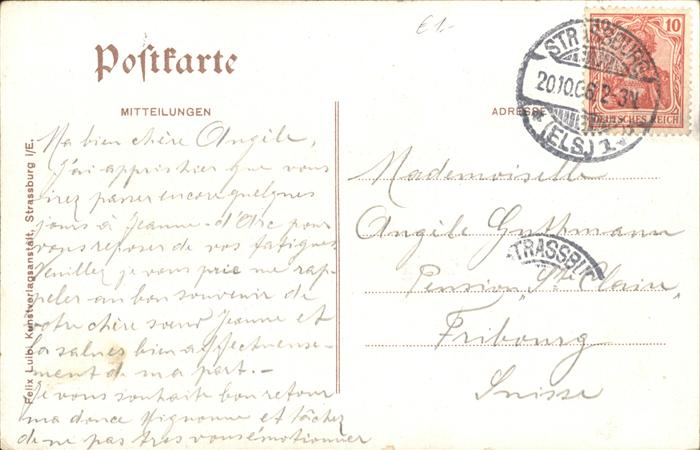 €1.-
Postkarte
MITTEILUNGEN
ADRESSE
10
DEUTSCHES REICH
STRASSBURG
20.10.06.2-3N.
* (ELS.) 1. *
Ma bien chère Angèle,
J'ai appris hier que vous
irez passer encore quelques
jours à Jeanne-d'Arc pour
vous reposer de vos fatigues
Veuillez je vous prie me rap-
peler au bon souvenir de
votre chère sœur Jeanne et
la saluer bien affectueuse-
ment de ma part.-
Je vous souhaite bon retour
ma douce Mignonne et tâchez
de ne pas trop vous émotionner
Mademoiselle
Angèle Guthmann
STRASSBU
Pension "Ste Claire"
Fribourg
Suisse
Felix Luib, Kunstverlagsanstalt, Strassburg i/E.